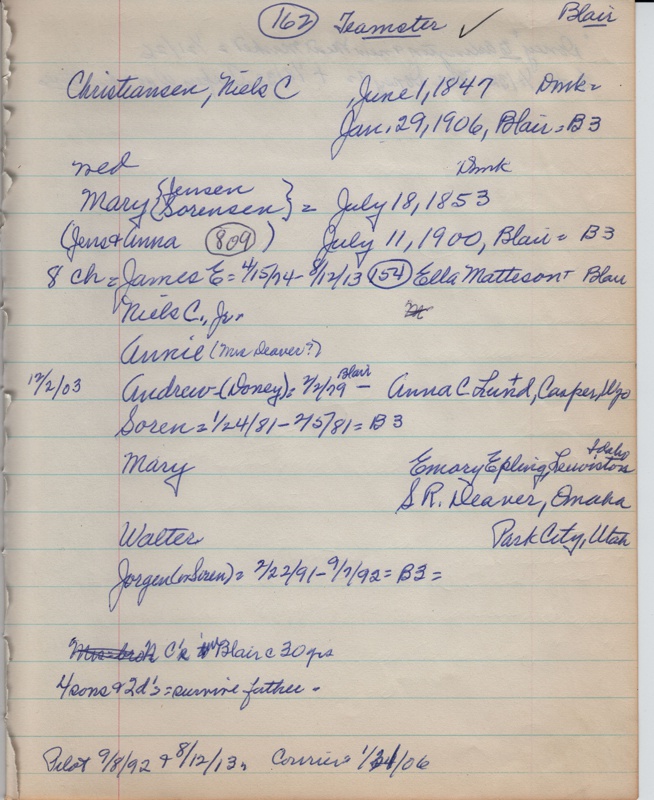 162 Teamster ✓ Blair
Christiansen, Niels C , June 1, 1847 Dmk=
Jan. 29, 1906, Blair = B3
wed Dmk
Mary {Jensen Sorensen} = July 18, 1853
(Jens & Anna 809) July 11, 1900, Blair = B3
8 ch = James E = 4/15/74 - 8/12/13 154 Ella Matteson + Blair
Niels C., Jr.
Annie (Mrs Deaver?)
12/2/03 Andrew - (Doney) = 2/2/79 Blair - Anna C Lund, Casper, Wyo
Soren = 1/24/81 - 2/5/81 = B3
Mary Emory Epling, Lewiston Idaho
S R. Deaver, Omaha
Walter Park City, Utah
Jorgen (or Soren) = 2/22/91 - 9/7/92 = B3 =
C's in Blair c 30 yrs
4 sons & 2 d's = survive father.
Pilot 9/8/92 & 8/12/13, Courier = /06